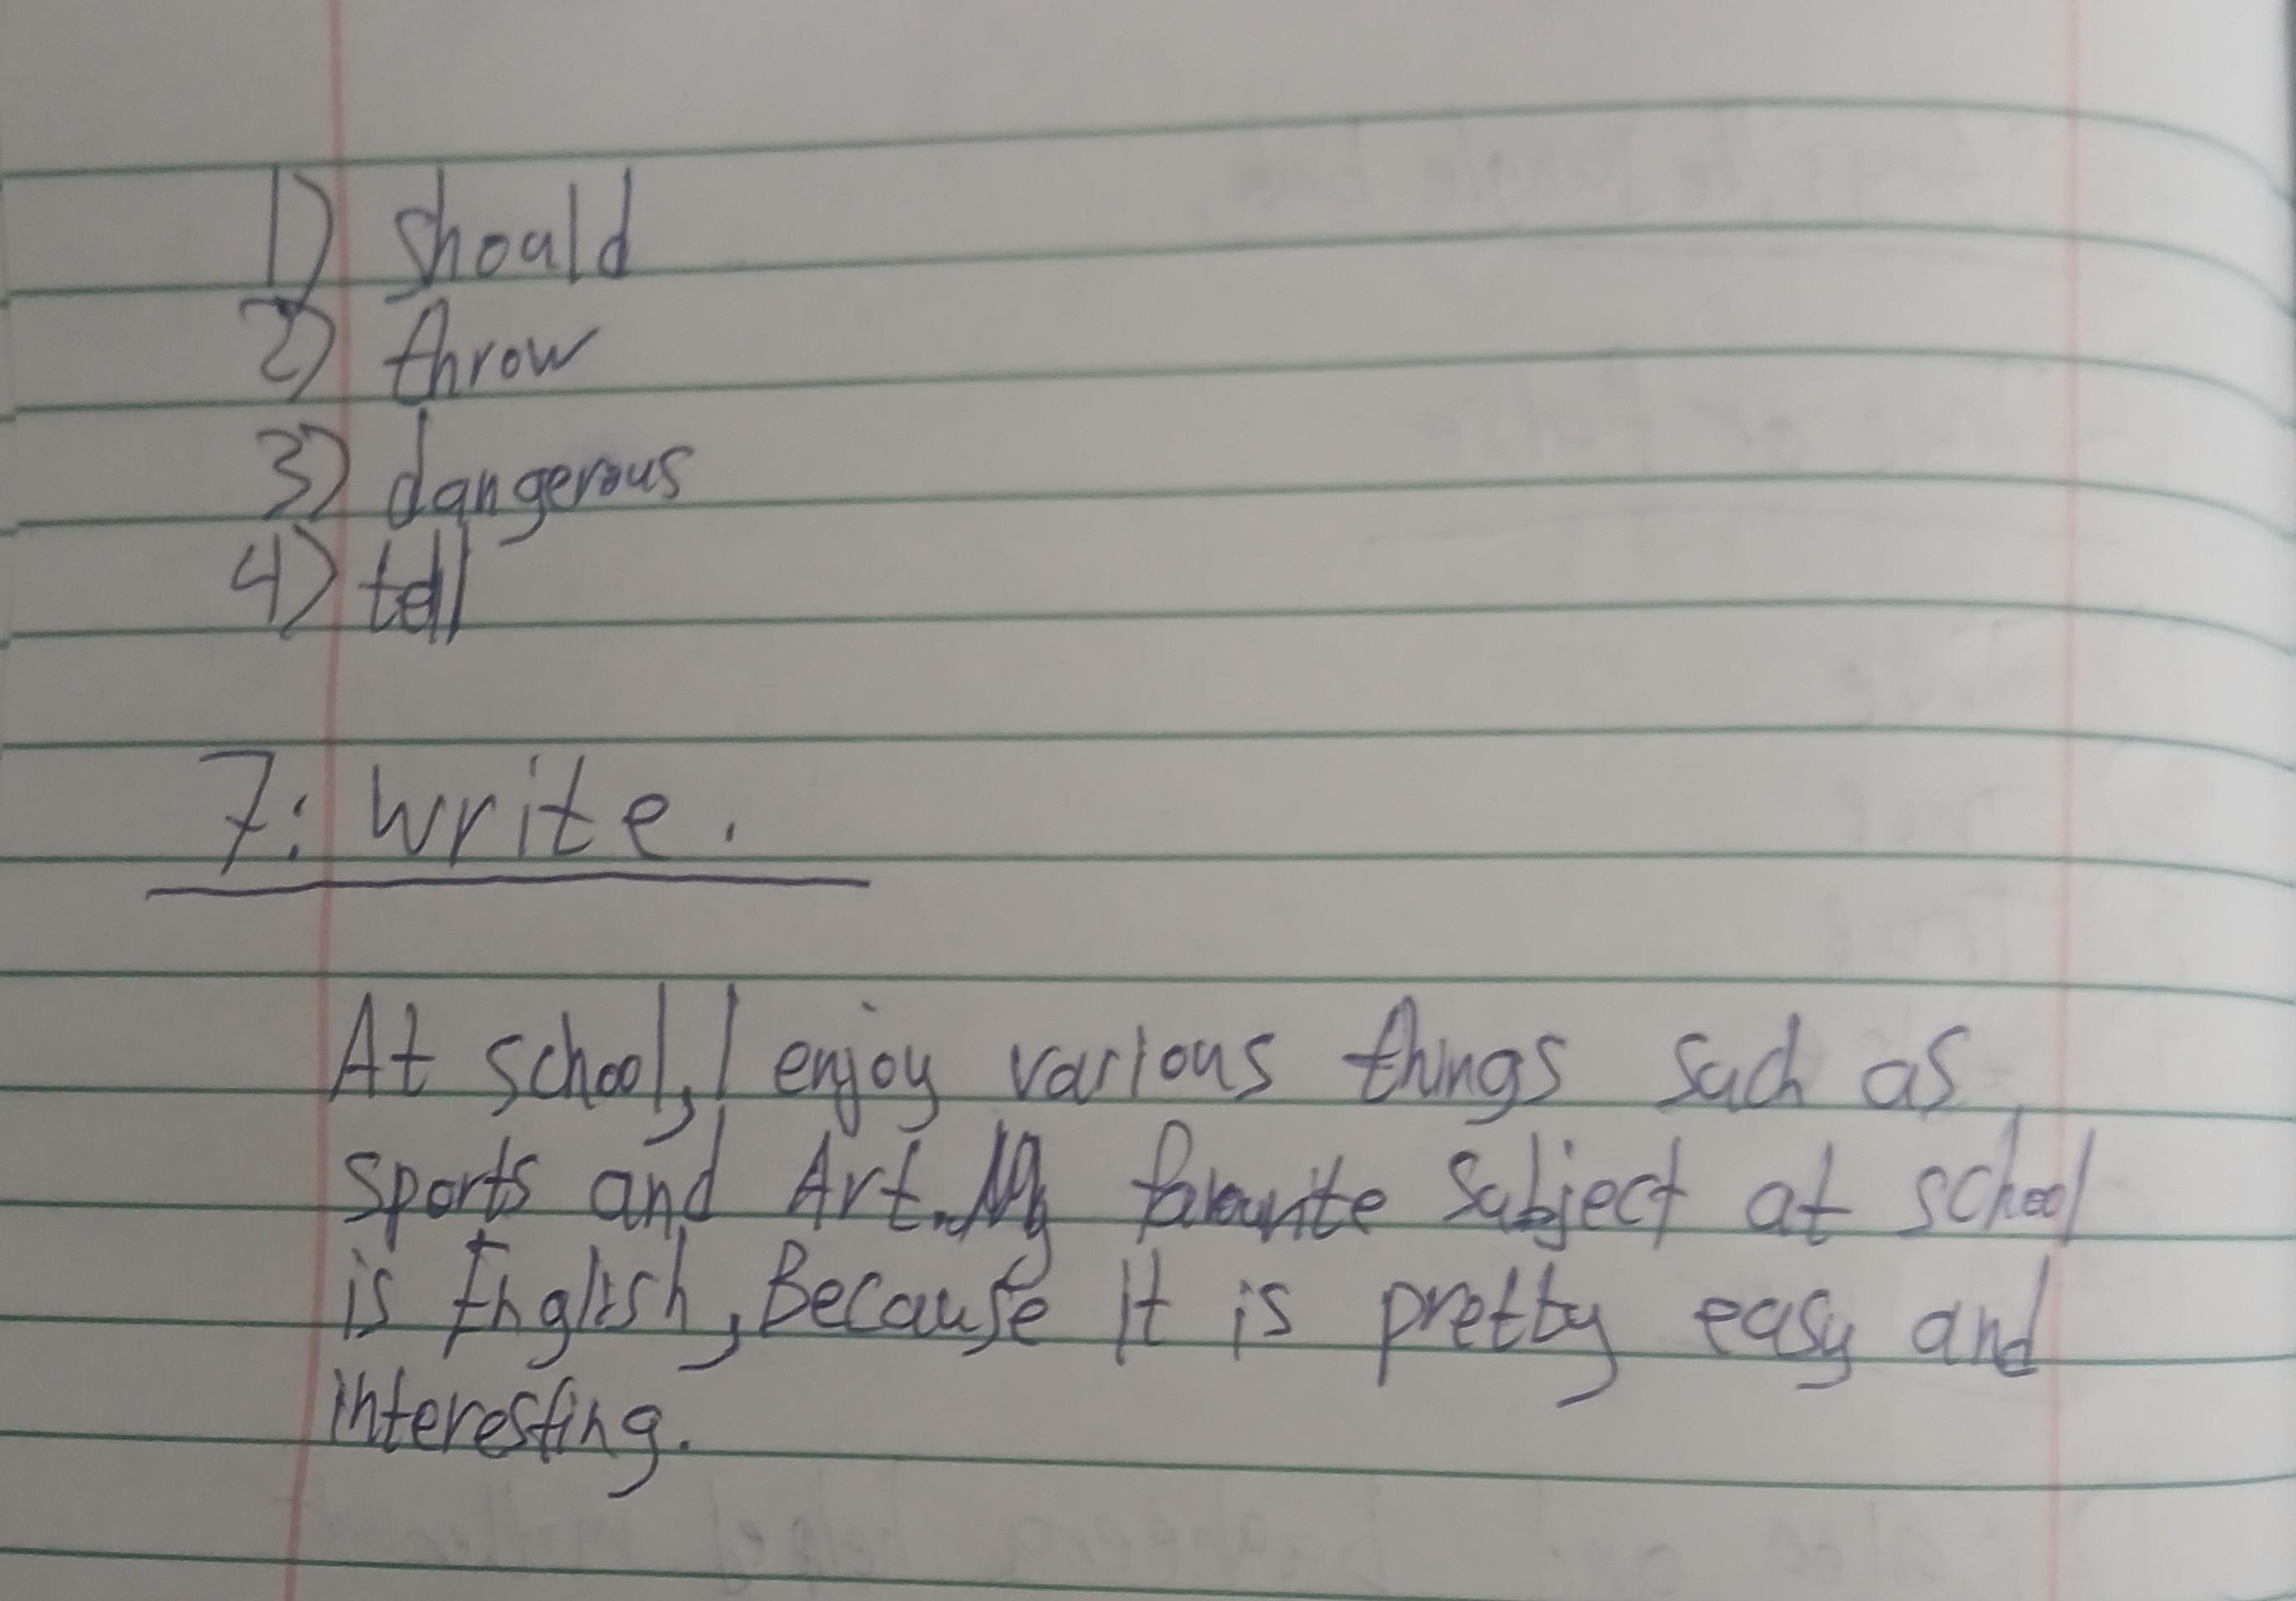 1) should
2) throw
3) dangerous
4) tell
7: write.
At school, I enjoy various things such as
sports and Art. My favourite subject at school
is English, Because it is pretty easy and
interesting.